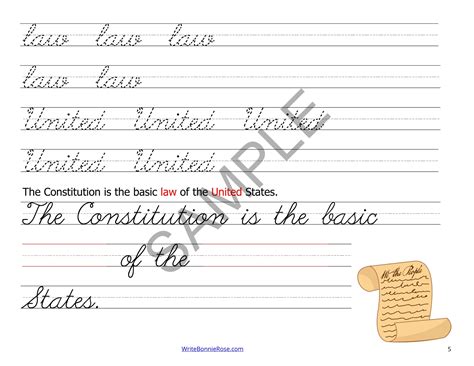 law law law
law law
United United United
United United
The Constitution is the basic law of the United States.
The Constitution is the basic
of the
States.
SAMPLE
We the People
WriteBonnieRose.com
5